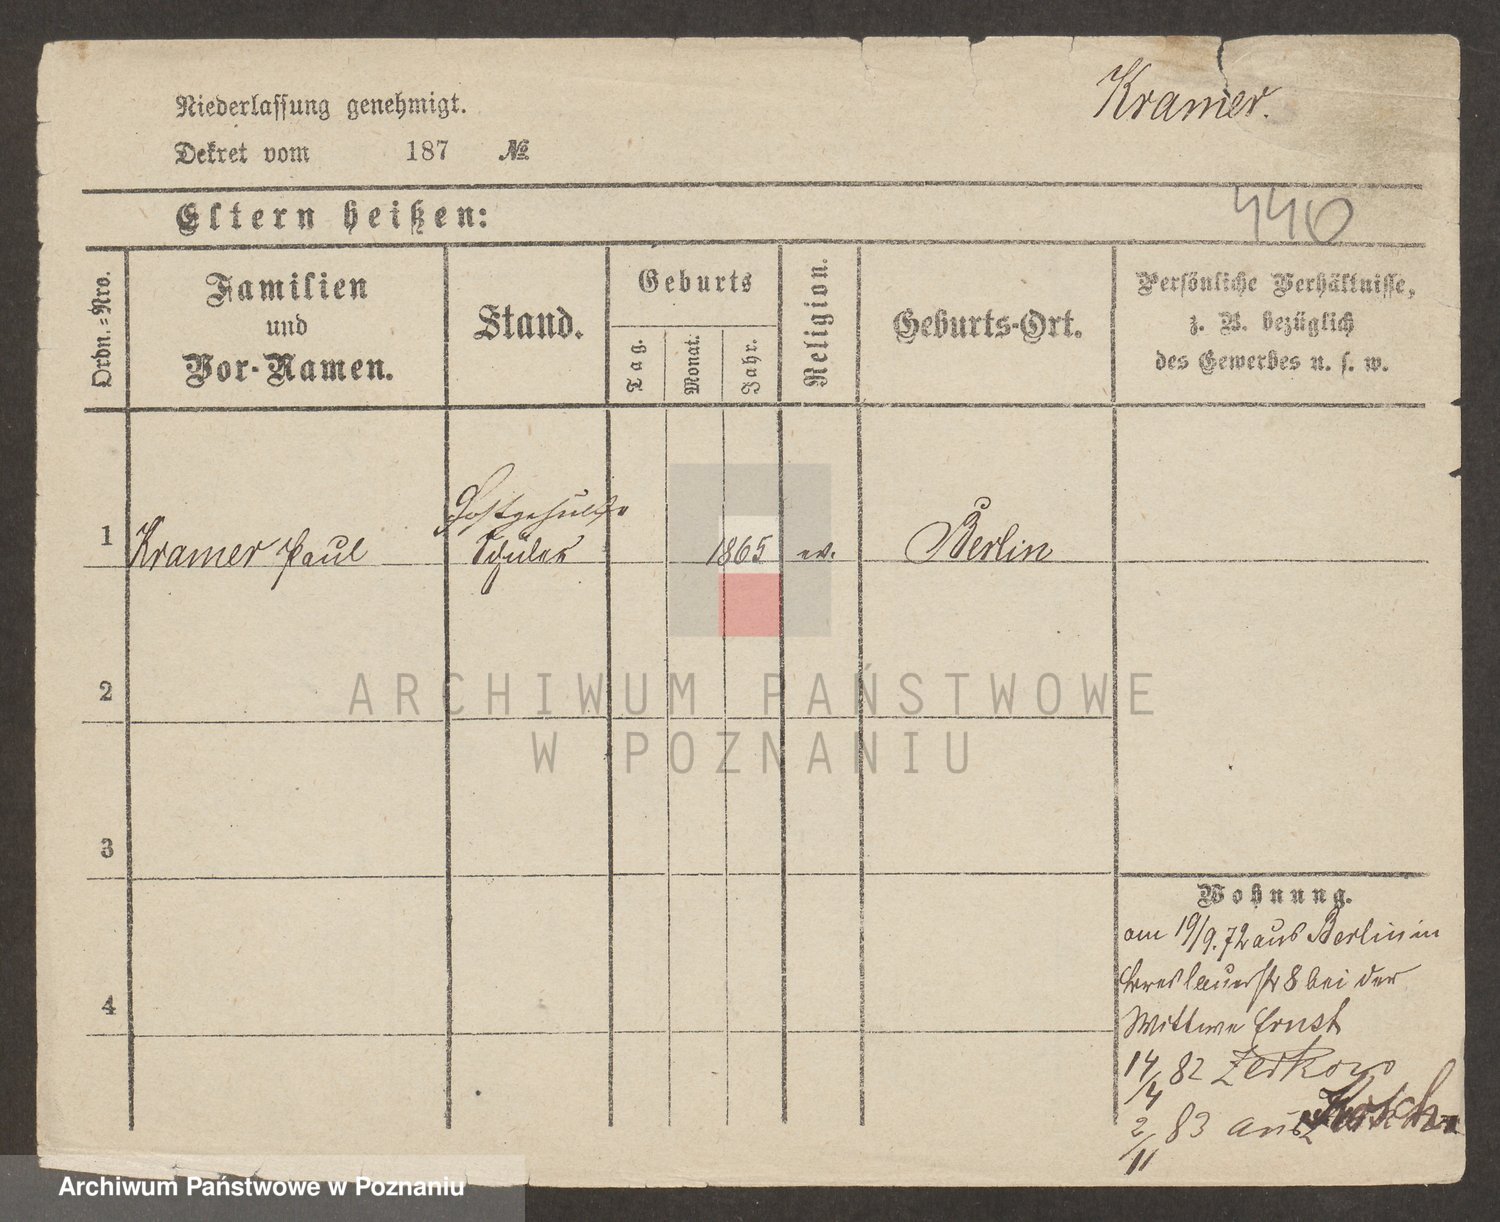 Kramer.
Niederlassung genehmigt.
Dekret vom 187 №
440
Eltern heißen:
Ordn.-Nro.
Familien
und
Vor-Namen.
Stand.
Geburts
Tag.
Monat.
Jahr.
Religion.
Geburts-Ort.
Persönliche Verhältnisse,
z. B. bezüglich
des Gewerbes u. s. w.
Postgehülfe
1 Kramer Paul Schüler 1865 ev. Berlin
2
3
4
Wohnung.
am 19/9. 72 aus Berlin in
Breslauerstr 8 bei der
Wittwe Ernst
14/4 82 Zerkow
2/11 83 aus
ARCHIWUM PAŃSTWOWE
W POZNANIU
Archiwum Państwowe w Poznaniu